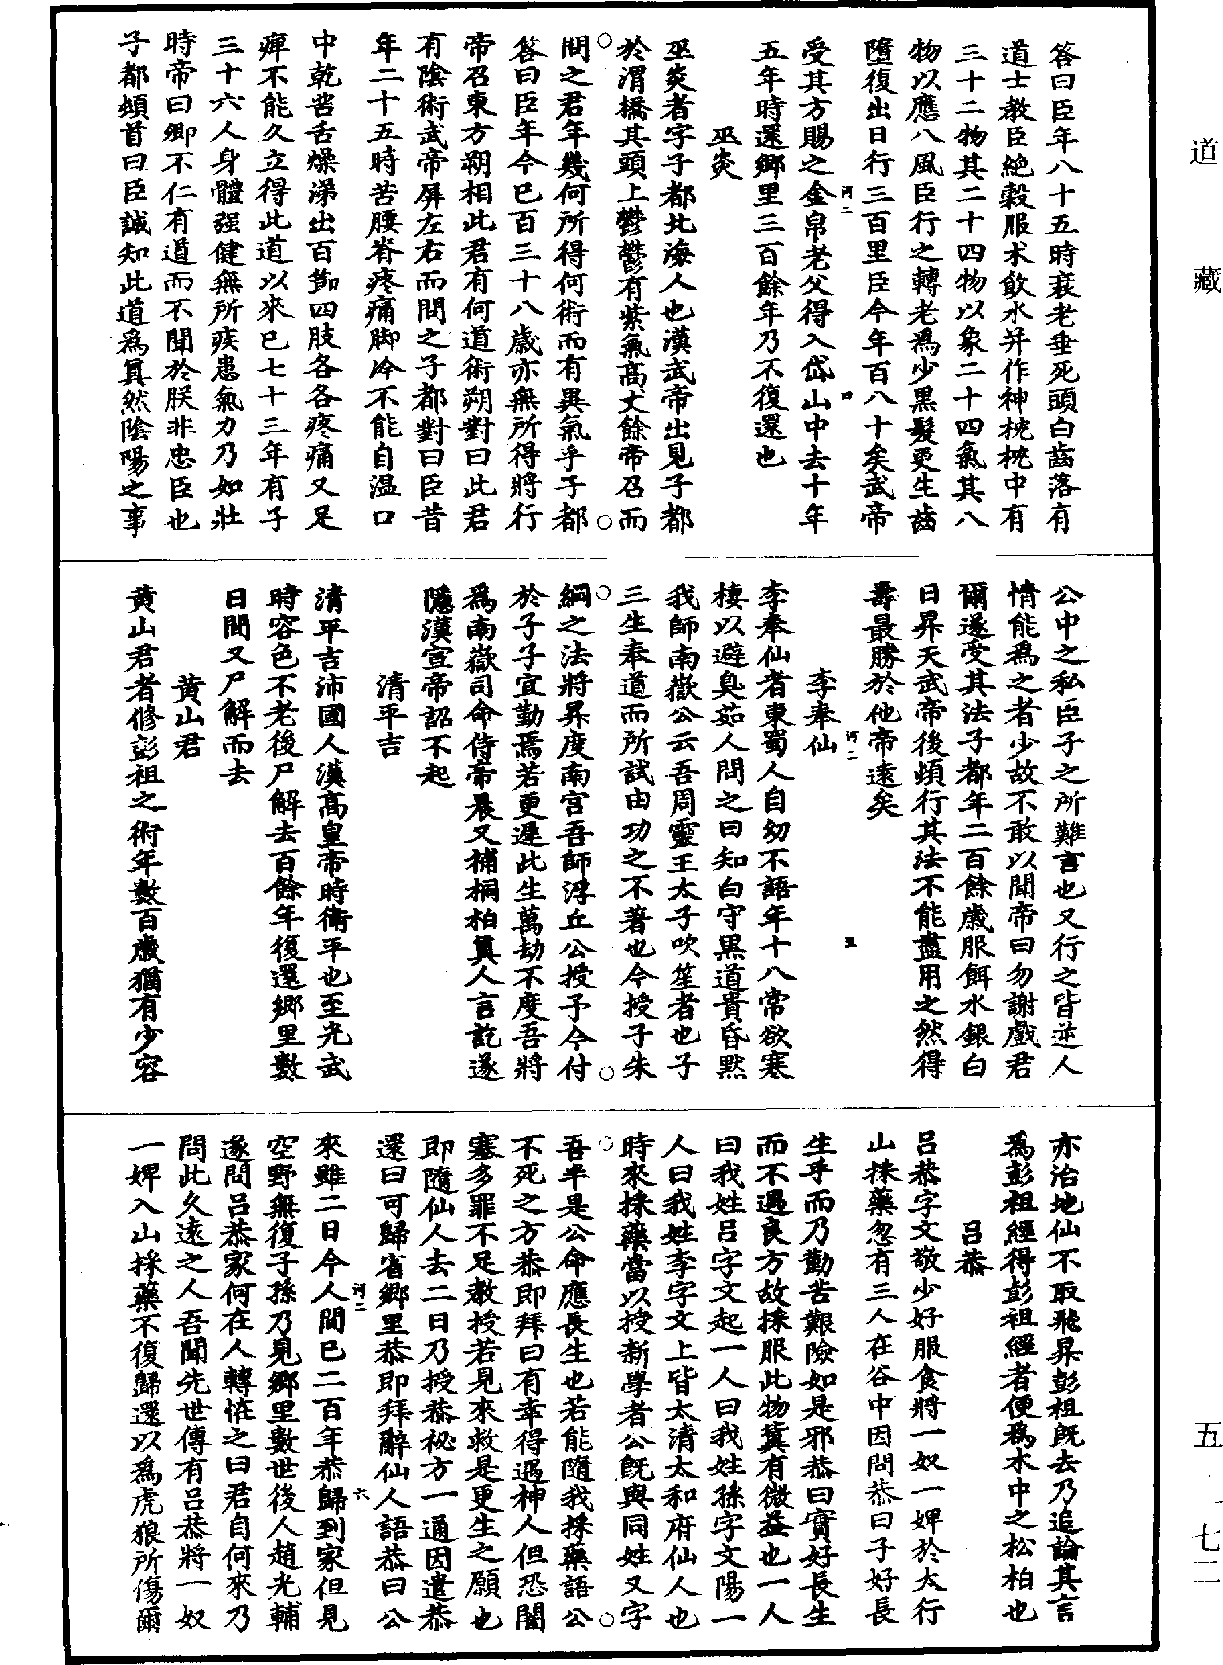 道藏
五·七二
答曰臣年八十五時衰老垂死頭白齒落有
道士教臣絕穀服朮飲水并作神枕枕中有
三十二物其二十四物以象二十四氣其八
物以應八風臣行之轉老爲少黑髮更生齒
墮復出日行三百里臣今年百八十矣武帝
受其方賜之金帛老父得入岱山中去十年
五年時還鄉里三百餘年乃不復還也
巫炎
巫炎者字子都北海人也漢武帝出見子都
於渭橋其頭上鬱鬱有紫氣高丈餘帝召而
問之君年幾何所得何術而有異氣乎子都
答曰臣年今已百三十八歲亦無所得將行
帝召東方朔相此君有何道術朔對曰此君
有陰術武帝屏左右而問之子都對曰臣昔
年二十五時苦腰脊疼痛脚冷不能自温口
中乾苦舌燥涕出百節四肢各各疼痛又足
痺不能久立得此道以來已七十三年有子
三十六人身體强健無所疾患氣力乃如壯
時帝曰卿不仁有道而不聞於朕非忠臣也
子都頓首曰臣誠知此道爲真然陰陽之事
公中之私臣子之所難言也又行之皆逆人
情能爲之者少故不敢以聞帝曰勿謝戲君
爾遂受其法子都年二百餘歲服餌水銀白
日昇天武帝後頗行其法不能盡用之然得
壽最勝於他帝遠矣
李奉仙
李奉仙者東蜀人自幼不語年十八常欲寒
棲以避臭茹人問之曰知白守黑道貴昏默
我師南嶽公云吾周靈王太子吹笙者也子
三生奉道而所試由功之不著也今授子朱
綱之法將昇度南宮吾師浮丘公授予今付
於子子宜勤焉若更遲此生萬劫不度吾將
爲南嶽司命侍帝晨又補桐柏真人言訖遂
隱漢宣帝詔不起
清平吉
清平吉沛國人漢高皇帝時衛平也至光武
時容色不老後尸解去百餘年復還鄉里數
日間又尸解而去
黄山君
黄山君者修彭祖之術年數百歲猶有少容
亦治地仙不取飛昇彭祖既去乃追論其言
爲彭祖經得彭祖經者便爲木中之松柏也
呂恭
呂恭字文敬少好服食將一奴一婢於太行
山採藥忽有三人在谷中因問恭曰子好長
生乎而乃勤苦艱險如是邪恭曰實好長生
而不遇良方故採服此物冀有微益也一人
曰我姓呂字文起一人曰我姓孫字文陽一
人曰我姓李字文上皆太清太和府仙人也
時來採藥當以授新學者公既與同姓又字
吾半是公命應長生也若能隨我採藥語公
不死之方恭即拜曰有幸得遇神人但恐闇
塞多罪不足教授若見來救是更生之願也
即隨仙人去二日乃授恭秘方一通因遣恭
還曰可歸省鄉里恭即拜辭仙人語恭曰公
來雖二日今人間已二百年恭歸到家但見
空野無復子孫乃見鄉里數世後人趙光輔
遂問呂恭家何在人轉怪之曰君自何來乃
問此久遠之人吾聞先世傳有呂恭將一奴
一婢入山採藥不復歸還以爲虎狼所傷爾